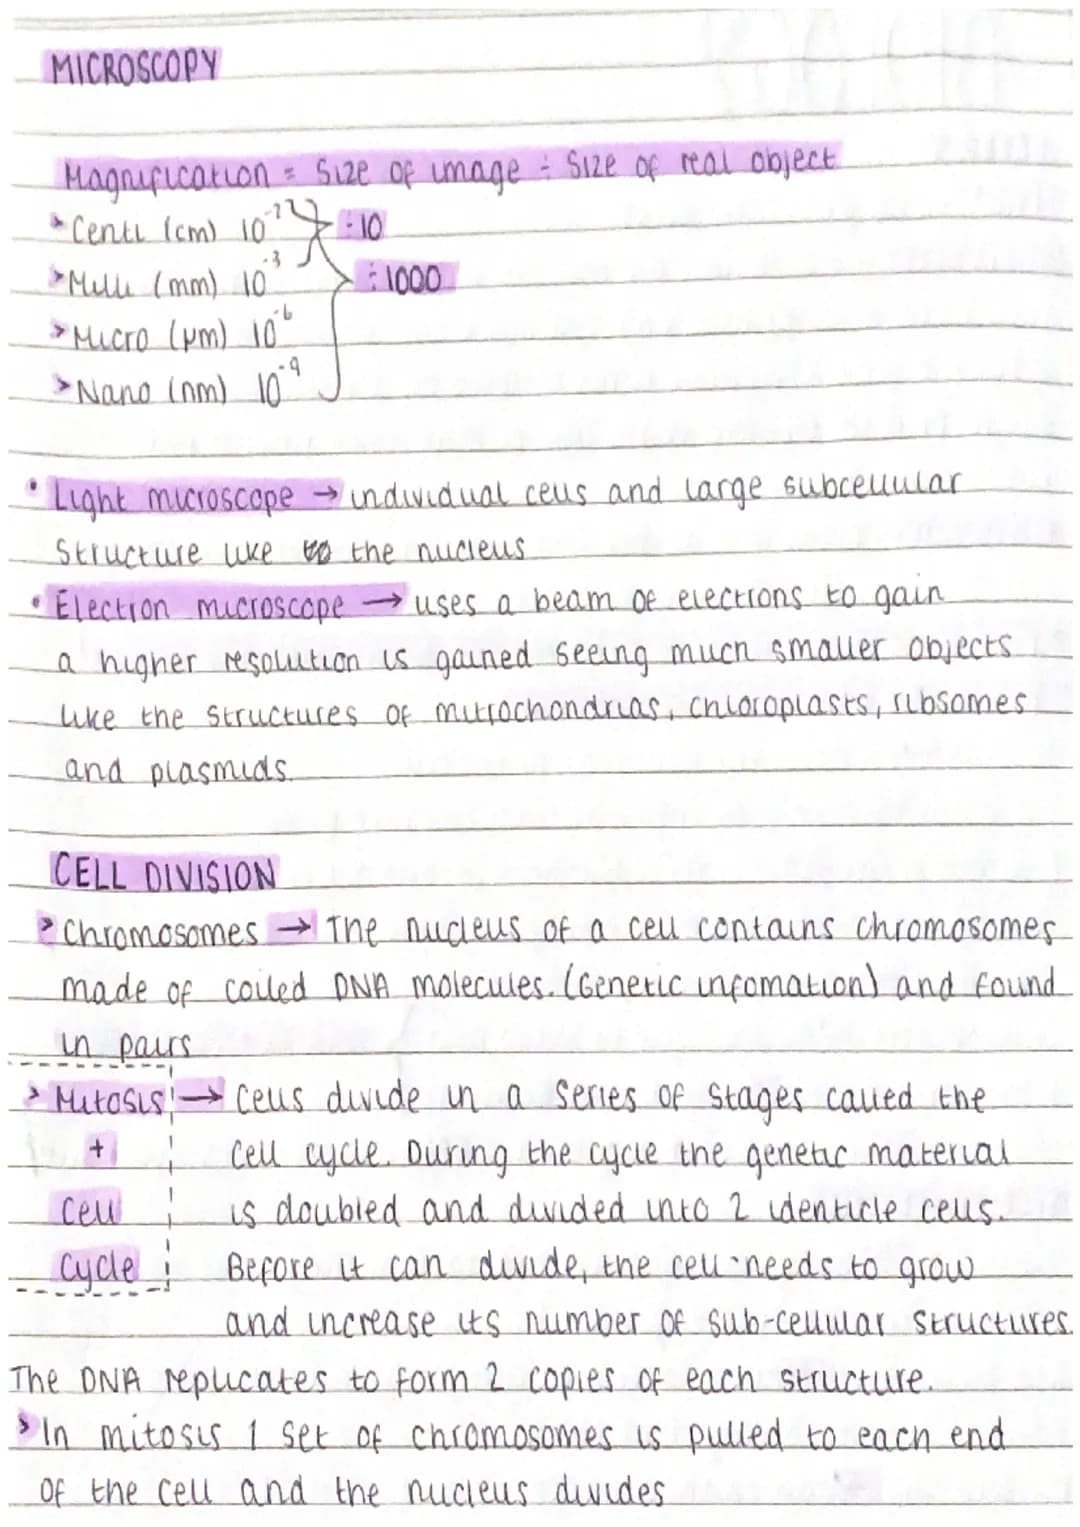 MICROSCOPY
Magnification = Size of image ÷ Size of real object
> Centi (cm) 10⁻² ÷10
> Milli (mm) 10⁻³ ÷1000
> Micro (μm) 10⁻⁶
> Nano (nm) 10⁻⁹
• Light microscope → individual cells and large subcellular
Structure like to the nucleus
• Electron microscope → uses a beam of electrons to gain
a higher resolution is gained seeing much smaller objects
like the structures of mitrochondrias, chloroplasts, ribsomes
and plasmids.
CELL DIVISION
> Chromosomes → The nucleus of a cell contains chromosomes
made of coiled DNA molecules. (Genetic infomation) and found
in pairs
> Mitosis → Cells divide in a series of stages called the
+ cell cycle. During the cycle the genetic material
Cell is doubled and divided into 2 identicle cells.
Cycle Before it can divide, the cell needs to grow
and increase its number of sub-cellular structures.
The DNA replicates to form 2 copies of each structure.
> In mitosis 1 set of chromosomes is pulled to each end
of the cell and the nucleus divides